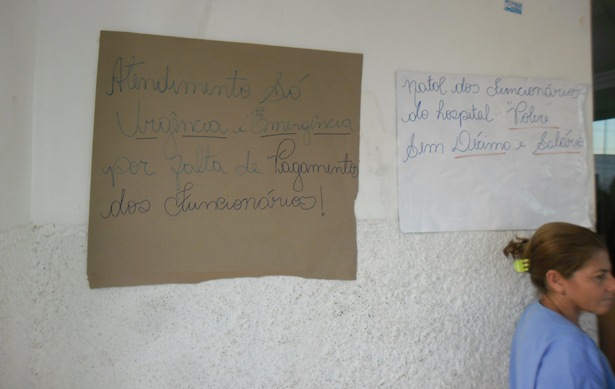 Atendimento Só
Urgência e Emergência
por falta de Pagamento
dos Funcionários!
natal dos Funcionários
do hospital "Pobre"
Sem Décimo e Salário